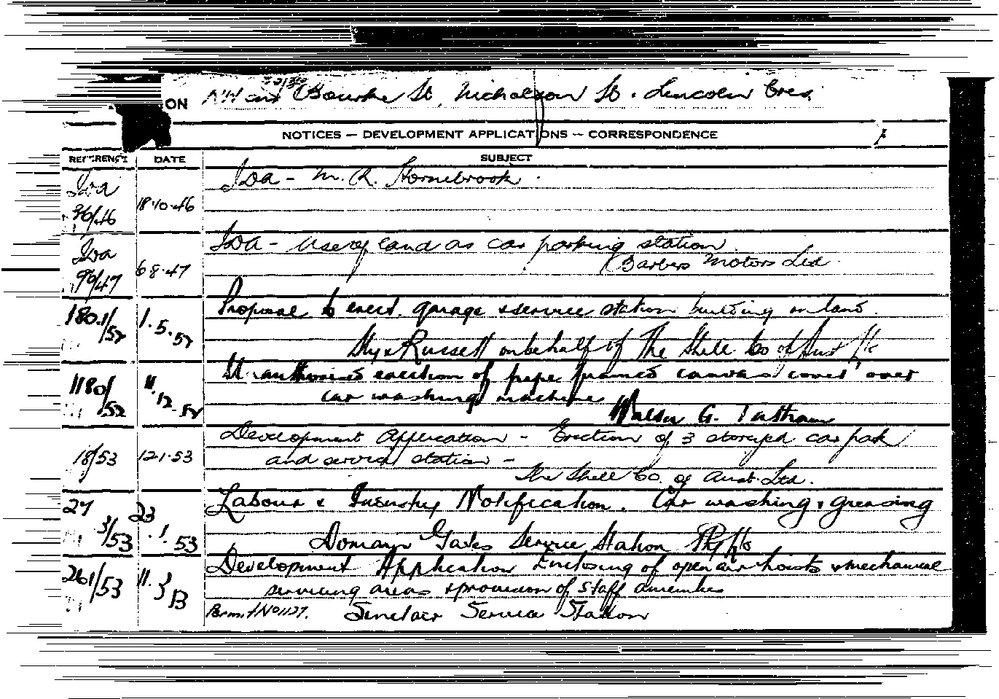 ON Bourke St, Nicholson St. Lincoln Cres.
NOTICES — DEVELOPMENT APPLICATIONS — CORRESPONDENCE
REFERENCE DATE SUBJECT
Ida 96/46 18.10.46 Ida - M. R. Hornibrook.
Ida 96/47 6.8.47 Ida - Use of land as car parking station.
Barbers Motors Ltd
1801/52 1.5.52 Proposal to erect garage & service station building on land.
Russell on behalf of The Shell Co of Aust P/L
1180/52 11.12.52 Unauthorised erection of pipe framed canvas cover over
car washing machine
Walter G.
18/53 12.1.53 Development Application - Erection of 3 storeyed car park
and service station -
The Shell Co. of Aust. Ltd.
27 3/53 23.1.53 Labour & Industry Notification. Car washing & greasing
Domain Gates Service Station Pty Ltd
261/53 11.3.53 Development Application Enclosing of open air hoists & mechanical
servicing areas & provision of staff amenities
Permit No 1137. Sinclair Service Station